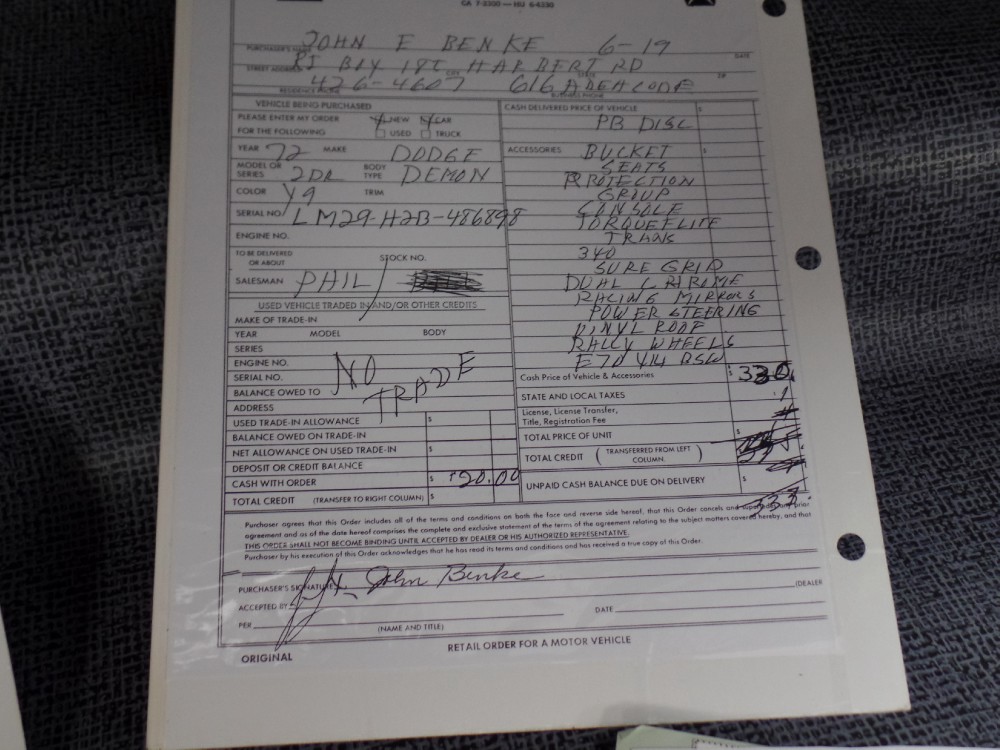 CA 7-2330 — HU 6-4330
PURCHASER'S NAME JOHN E BENKE 6-19 DATE
STREET ADDRESS BOX HARBERT RD
426-4607 616 AREA CODE
VEHICLE BEING PURCHASED
PLEASE ENTER MY ORDER NEW CAR
FOR THE FOLLOWING USED TRUCK
YEAR 72 MAKE DODGE
MODEL OR SERIES 2DR BODY TYPE DEMON
COLOR Y9 TRIM
SERIAL NO. LM29-H2B-486898
ENGINE NO.
TO BE DELIVERED
OR ABOUT STOCK NO.
SALESMAN PHIL
USED VEHICLE TRADED IN AND/OR OTHER CREDITS
MAKE OF TRADE-IN
YEAR MODEL BODY
SERIES
ENGINE NO.
SERIAL NO.
NO TRADE
BALANCE OWED TO
ADDRESS
USED TRADE-IN ALLOWANCE $
BALANCE OWED ON TRADE-IN
NET ALLOWANCE ON USED TRADE-IN $
DEPOSIT OR CREDIT BALANCE
CASH WITH ORDER $20.00
TOTAL CREDIT (TRANSFER TO RIGHT COLUMN) $
CASH DELIVERED PRICE OF VEHICLE $
PB DISC
ACCESSORIES BUCKET $
SEATS
PROTECTION
GROUP
CONSOLE
TORQUEFLITE
TRANS
340
SURE GRIP
DUAL CHROME
RACING MIRRORS
POWER STEERING
VINYL ROOF
RALLY WHEELS
E70 X14 RSW
Cash Price of Vehicle & Accessories $
STATE AND LOCAL TAXES
License, License Transfer,
Title, Registration Fee
TOTAL PRICE OF UNIT $
TOTAL CREDIT (TRANSFERRED FROM LEFT COLUMN.)
UNPAID CASH BALANCE DUE ON DELIVERY $
Purchaser agrees that this Order includes all of the terms and conditions on both the face and reverse side hereof, that this Order cancels and supersedes any prior
agreement and as of the date hereof comprises the complete and exclusive statement of the terms of the agreement relating to the subject matters covered hereby, and that
THIS ORDER SHALL NOT BECOME BINDING UNTIL ACCEPTED BY DEALER OR HIS AUTHORIZED REPRESENTATIVE.
Purchaser by his execution of this Order acknowledges that he has read its terms and conditions and has received a true copy of this Order.
PURCHASER'S SIGNATURE John Benke (DEALER
ACCEPTED BY
PER (NAME AND TITLE) DATE
ORIGINAL RETAIL ORDER FOR A MOTOR VEHICLE